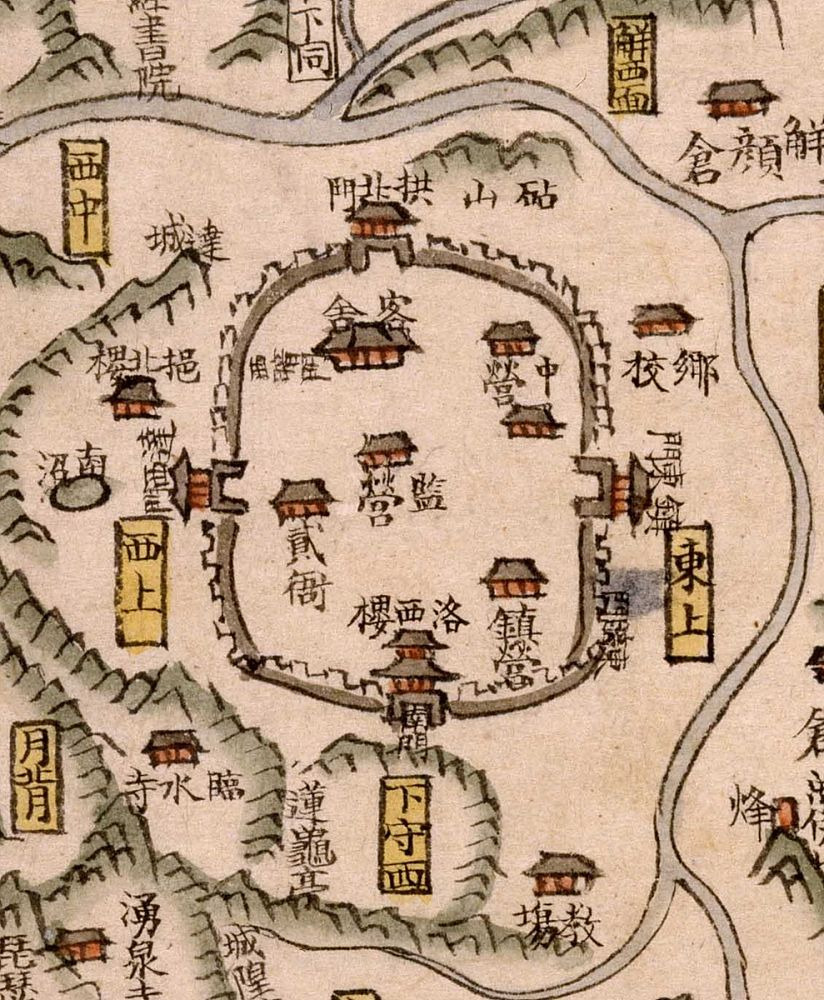 書院
下同
解西面
解顔倉
西中
拱北門
砧山
達城
客舍
中營
鄉校
挹北樓
達西門
南沼
監營
貳衙
鎮東門
西上
東上
洛西樓
鎮營
南門
月背
臨水寺
蓮龜亭
下守西
烽
倉
教塲
湧泉寺
城隍
琵琶